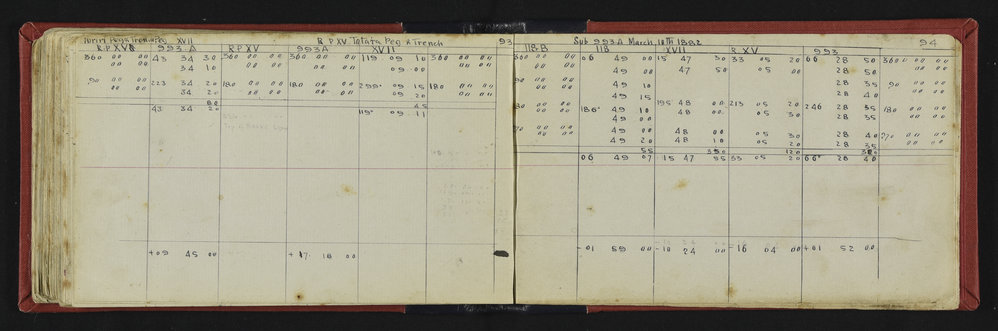 XVII R P XV Totara Peg & Trench 93
R P XV 993 A R P XV 993 A XVII
360 00 00 43 34 30 360 00 00 360 00 00 119 09 10 360 00 00
00 00 34 10 00 00 00 00 09 00 00 00
90 00 00 223 34 20 180 00 00 180 00 00 299° 09 15 180 00 00
00 00 34 20 00 00 00 00 09 20 00 00
80 45
43 34 20 119° 09 11
+09 45 00 +17 18 00
Sub 993 A March 10TH 1882 94
118 B 118 XVII R XV 993
360 00 00 06 49 00 15 47 50 33 05 20 66 28 50 360 00 00
00 00 49 00 47 50 05 00 28 50 00 00
90 00 00 49 10 28 35 90 00 00
00 00 49 15 28 40 00 00
180 00 00 186° 49 10 195 48 00 213 05 20 246 28 35 180 00 00
00 00 49 00 48 00 05 30 28 35 00 00
270 00 00 49 00 48 00 05 30 28 40 270 00 00
00 00 49 20 48 10 05 20 28 35 00 00
55 350 120
06 49 07 15 47 55 33 05 20 66° 28 40
-01 59 00 -10 24 00 -16 04 00 +01 52 00